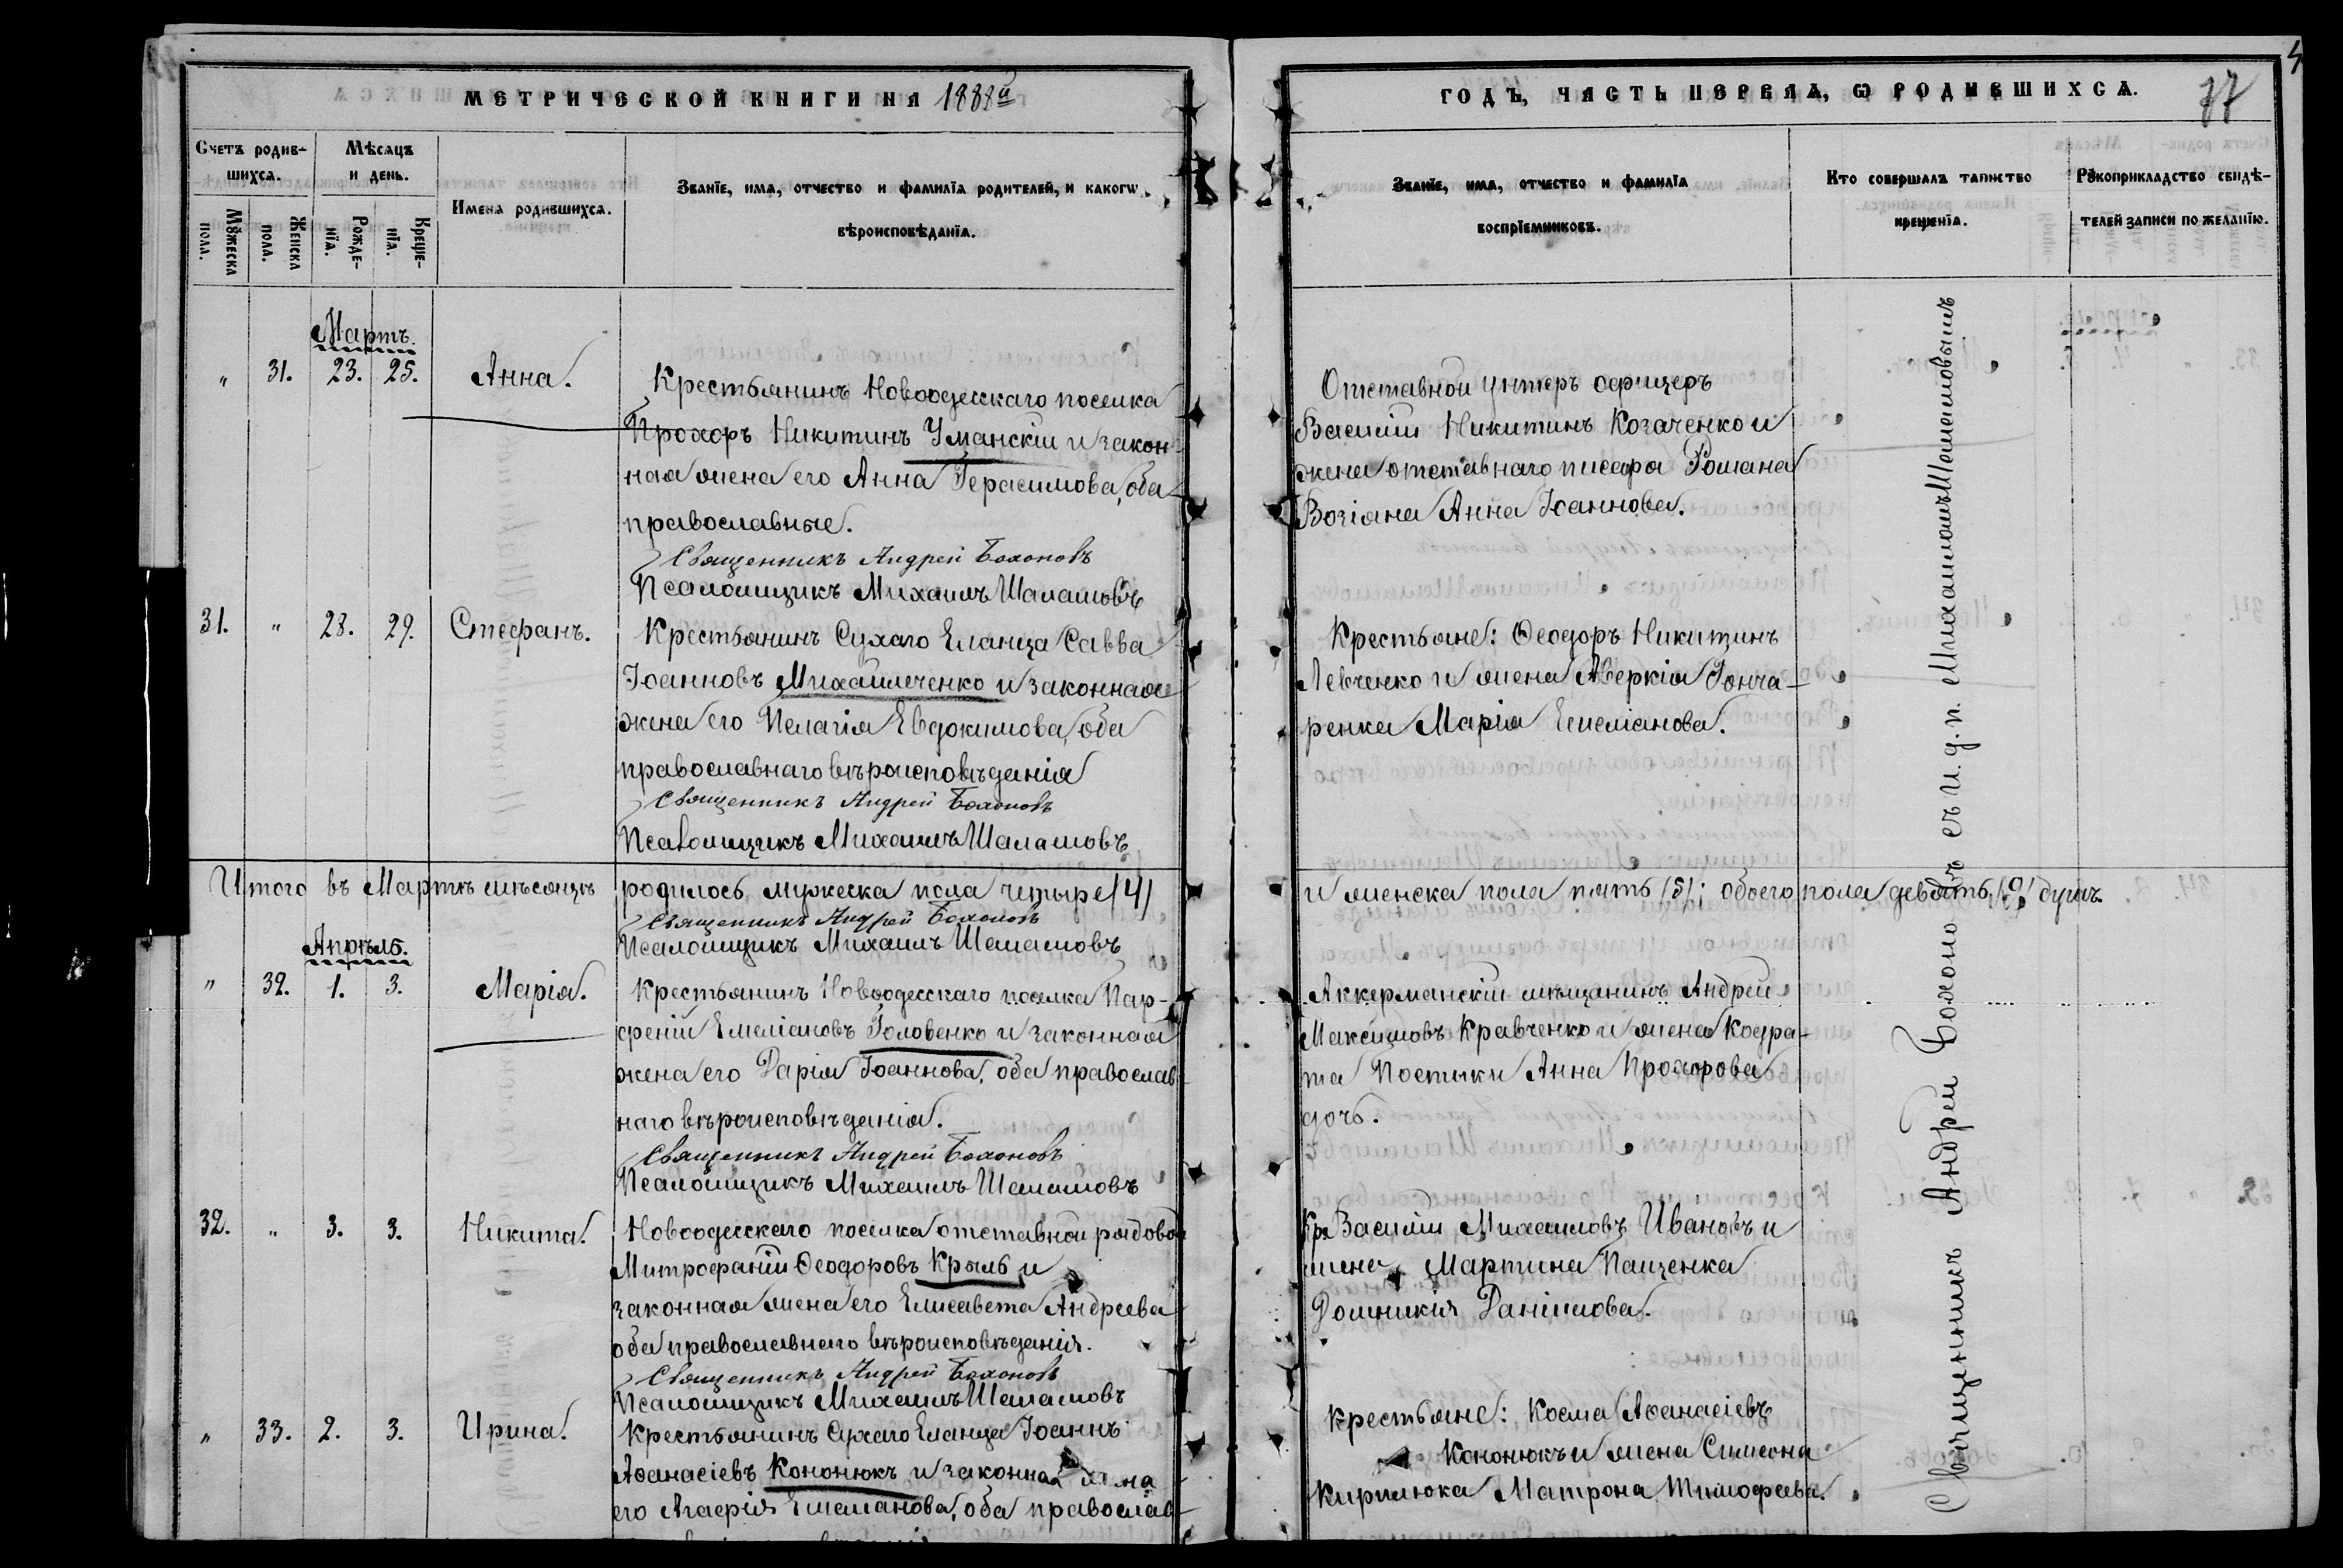 МЕТРИЧЕСКОЙ КНИГИ НА 1888й
ГОДЪ, ЧАСТЬ ПЕРВАЯ, Ѡ РОДИВШИХСЯ.
37
Счетъ родив-
шихся.
Мѣсяцъ
и день.
Имена родившихся.
Званїе, имя, отчество и фамилїа родителей, и какогѡ
вѣроисповѣданїя.
Мꙋжеска
пола.
Женска
пола.
Рожде-
нїя.
Креще-
нїя.
Званїе, имя, отчество и фамилїа
воспрїемниковъ.
Кто совершалъ таинство
крещенїя.
Рꙋкоприкладство свидѣ-
телей записи по желанїю.
Мартъ.
" 31. 23. 25. Анна.
Крестьянинъ Новоодесскаго поселка
Прохоръ Никитинъ Уманскій и закон-
ная жена его Анна Герасимова, оба
православные.
Священникъ Андрей Бохоновъ
Псаломщикъ Михаилъ Шаламовъ
Отставной унтеръ офицеръ
Василій Никитинъ Козаченко и
жена отставнаго писаря Романа
Возіана Анна Іоаннова.
31. " 28. 29. Стефанъ.
Крестьянинъ Сухаго Еланца Савва
Іоанновъ Михайличенко и законная
жена его Пелагія Евдокимова, оба
православнаго вѣроисповѣданія
Священникъ Андрей Бохоновъ
Псаломщикъ Михаилъ Шаламовъ
Крестьяне: Ѳеодоръ Никитинъ
Левченко и жена Аверкія Гонча-
ренка Марія Емеліанова.
Итого въ Мартѣ мѣсяцѣ родилось мужеска пола четыре /4/
и женска пола пять /5/; обоего пола девять /9/ душъ.
Священникъ Андрей Бохоновъ
Псаломщикъ Михаилъ Шаламовъ
Апрѣль.
" 32. 1. 3. Марія.
Крестьянинъ Новоодесскаго поселка Пар-
феній Емеліановъ Головенко и законная
жена его Дарія Іоаннова, оба православ-
наго вѣроисповѣданія.
Священникъ Андрей Бохоновъ
Псаломщикъ Михаилъ Шаламовъ
Аккерманскій мѣщанинъ Андрей
Максимовъ Кравченко и жена Кодра-
та Постыки Анна Прохорова
дочь.
32. " 3. 3. Никита.
Новоодесскаго поселка отставной рядовой
Митрофаній Ѳеодоровъ Крыль и
законная жена его Елисавета Андреева
оба православнаго вѣроисповѣданія.
Священникъ Андрей Бохоновъ
Псаломщикъ Михаилъ Шаламовъ
Кр. Василій Михаиловъ Ивановъ и
жена Мартина Пащенка
Домникія Даніилова.
" 33. 2. 3. Ирина.
Крестьянинъ Сухаго Еланца Іоаннъ
Аѳанасіевъ Кононюкъ и законная жена
его Агафія Емелианова, оба православ-
Крестьяне: Косма Аѳанасіевъ
Кононюкъ и жена Симеона
Кирилюка Матрона Тимофеева.
Священникъ Андрей Бохоновъ съ и. д. п. Михаиломъ Шаламовымъ